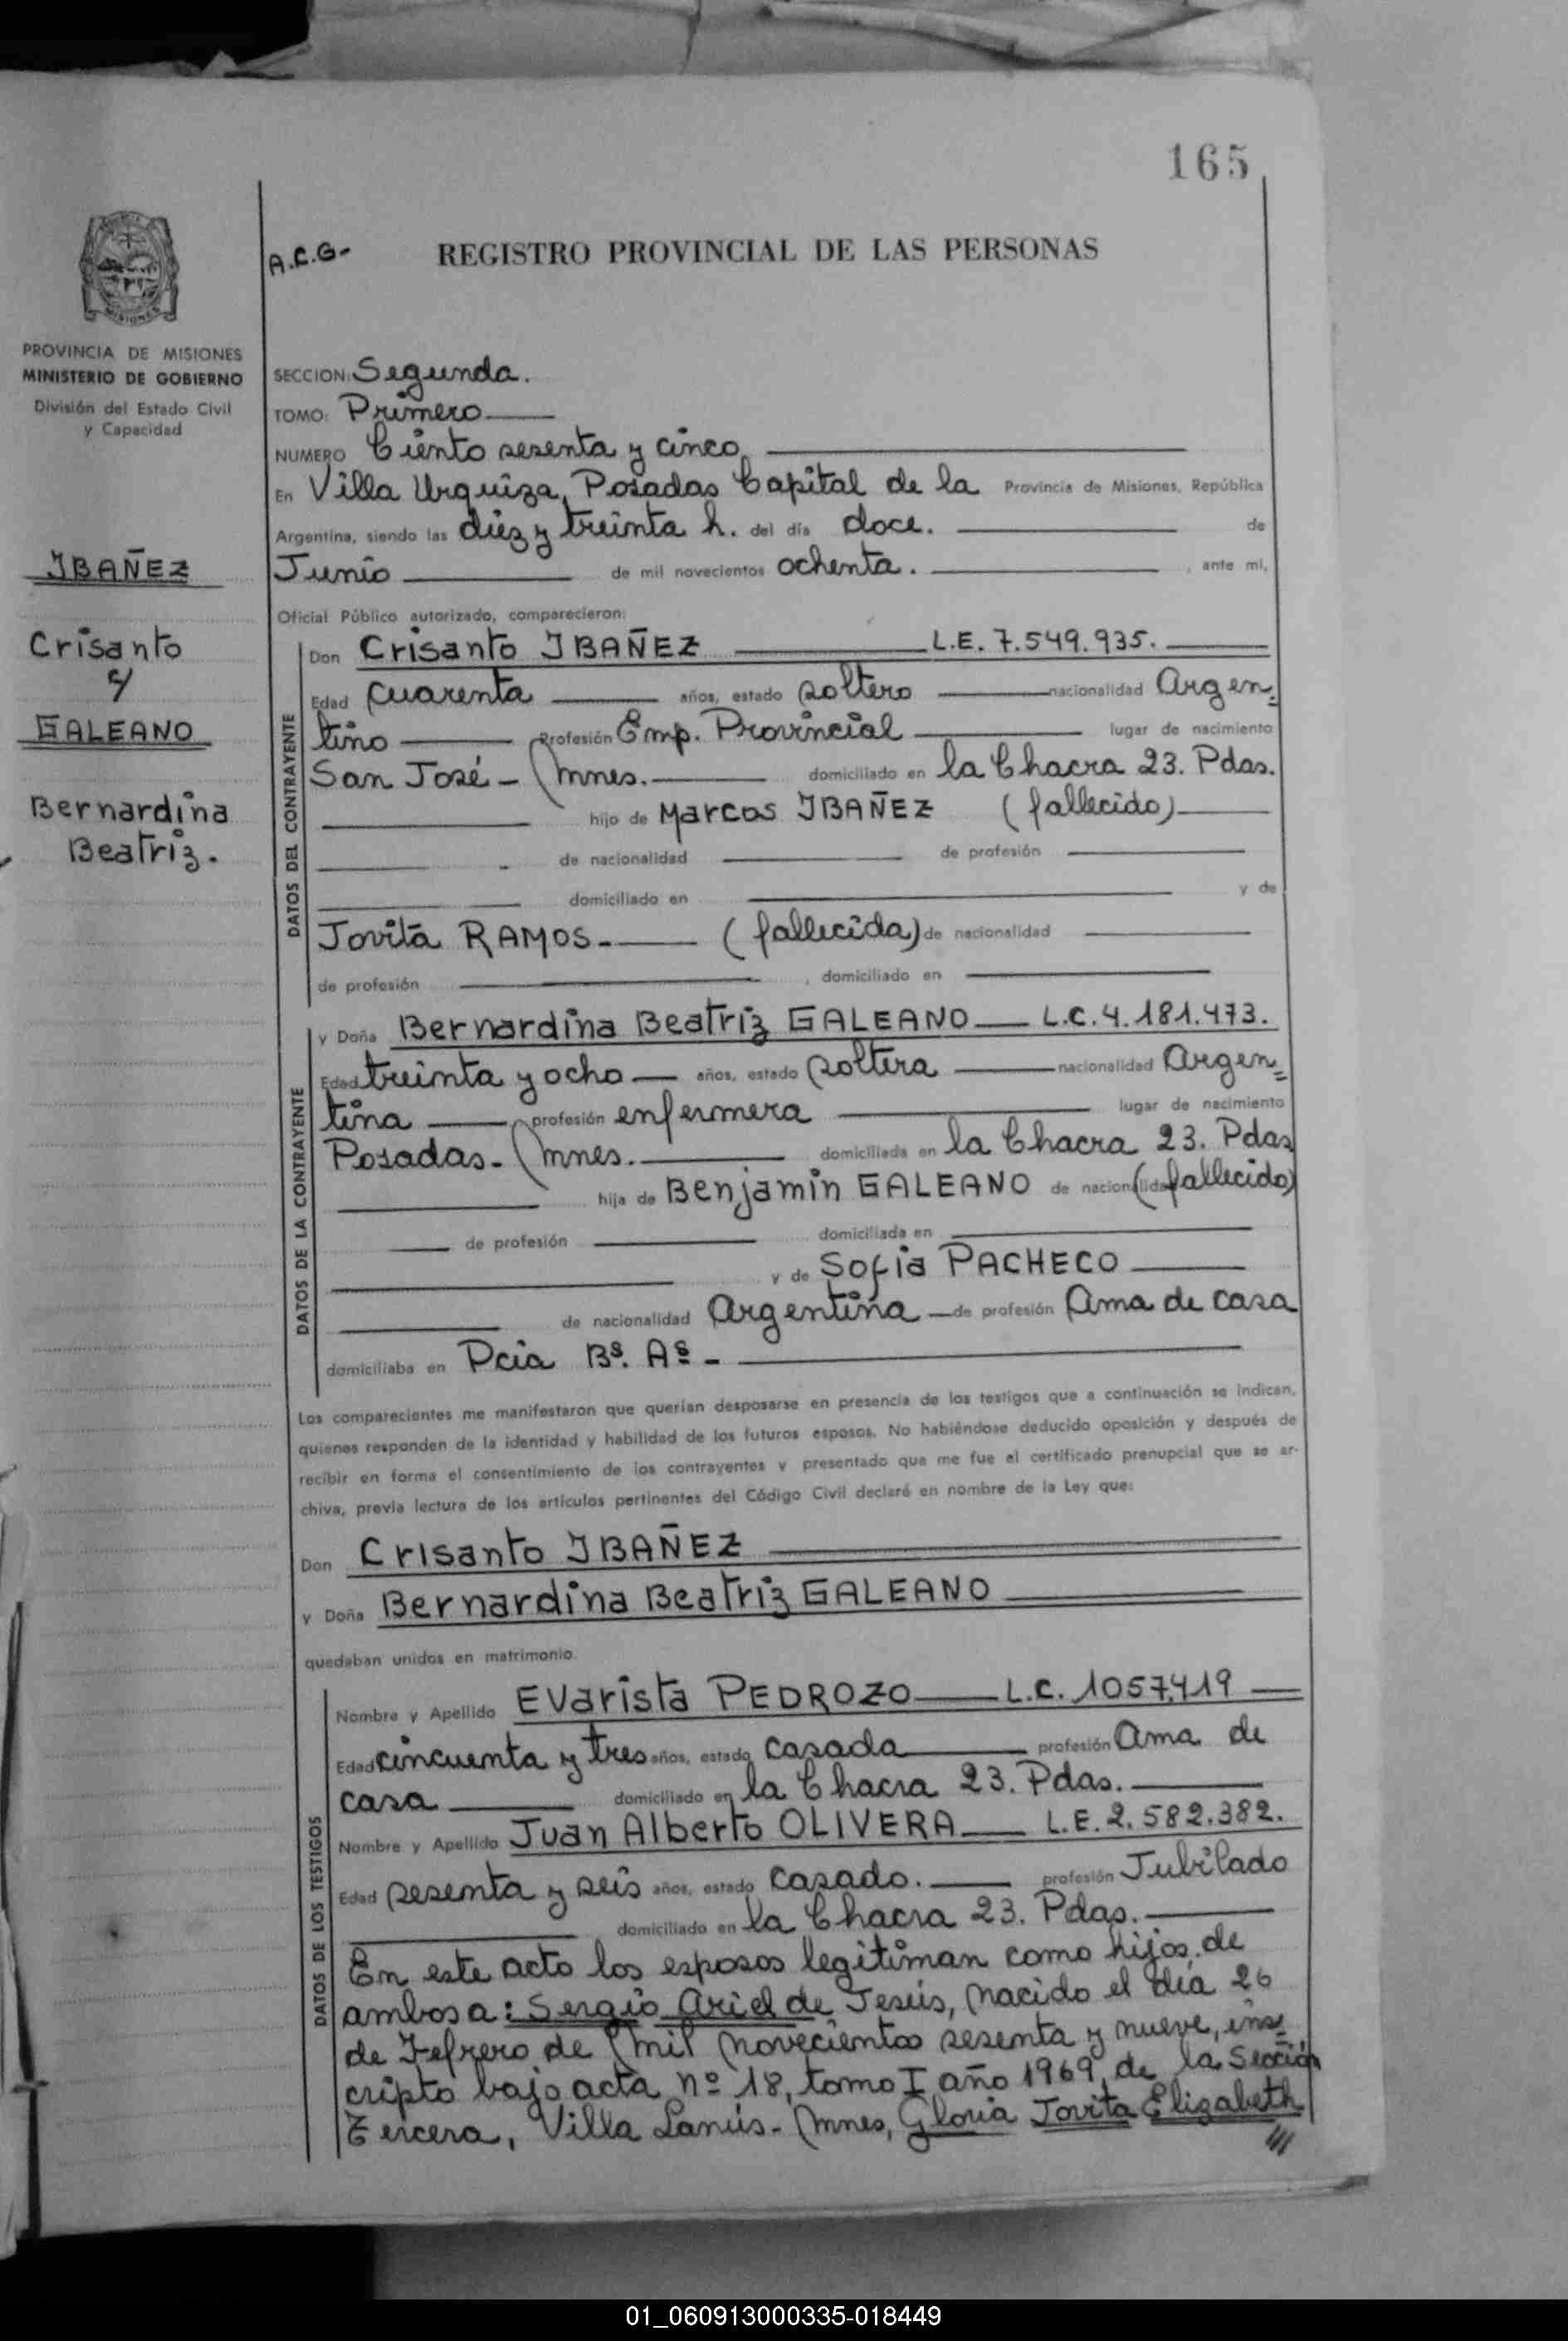 165
A.C.G-
REGISTRO PROVINCIAL DE LAS PERSONAS
PROVINCIA DE MISIONES
MINISTERIO DE GOBIERNO
División del Estado Civil
y Capacidad
IBAÑEZ
Crisanto
c/
GALEANO
Bernardina
Beatriz.
SECCION: Segunda.
TOMO: Primero
NUMERO Ciento sesenta y cinco
En Villa Urquiza, Posadas Capital de la Provincia de Misiones, República
Argentina, siendo las diez y treinta h. del día doce. de
Junio de mil novecientos ochenta. , ante mi,
Oficial Público autorizado, comparecieron:
DATOS DEL CONTRAYENTE
Don Crisanto IBAÑEZ L.E. 7.549.935.
Edad cuarenta años, estado soltero nacionalidad Argen=
tino Profesión Emp. Provincial lugar de nacimiento
San José - Mnes. domiciliado en la Chacra 23. Pdas.
hijo de Marcos IBAÑEZ (fallecido)
de nacionalidad de profesión
domiciliado en y de
Jovita RAMOS. (fallecida) de nacionalidad
de profesión , domiciliado en
DATOS DE LA CONTRAYENTE
y Doña Bernardina Beatriz GALEANO L.C. 4.181.473.
Edad treinta y ocho años, estado soltera nacionalidad Argen=
tina profesión enfermera lugar de nacimiento
Posadas. Mnes. domiciliada en la Chacra 23. Pdas
hija de Benjamin GALEANO de nacionalida (fallecido)
de profesión domiciliada en
y de Sofia PACHECO
de nacionalidad Argentina de profesión Ama de casa
domiciliaba en Pcia Bs. As -
Los comparecientes me manifestaron que querían desposarse en presencia de los testigos que a continuación se indican,
quienes responden de la identidad y habilidad de los futuros esposos. No habiéndose deducido oposición y después de
recibir en forma el consentimiento de los contrayentes y presentado que me fue el certificado prenupcial que se ar-
chiva, previa lectura de los artículos pertinentes del Código Civil declaré en nombre de la Ley que:
Don Crisanto IBAÑEZ
y Doña Bernardina Beatriz GALEANO
quedaban unidos en matrimonio.
DATOS DE LOS TESTIGOS
Nombre y Apellido Evarista PEDROZO L.C. 1057.419
Edad cincuenta y tres años, estado casada profesión Ama de
casa domiciliado en la Chacra 23. Pdas.
Nombre y Apellido Juan Alberto OLIVERA L.E. 2.582.382.
Edad sesenta y seis años, estado casado. profesión Jubilado
domiciliado en la Chacra 23. Pdas.
En este acto los esposos legitiman como hijos de
ambos a: Sergio Ariel de Jesús, nacido el día 26
de Febrero de mil novecientos sesenta y nueve, ins=
cripto bajo acta nº 18, tomo I año 1969, de la Sección
Tercera, Villa Lanús - Mnes, Gloria Jovita Elizabeth
///
01_060913000335-018449